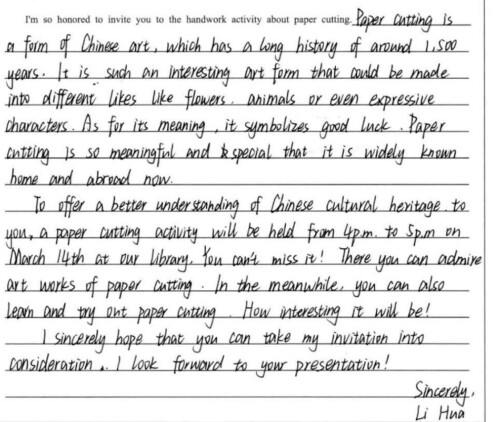 I'm so honored to invite you to the handwork activity about paper cutting. Paper cutting is
a form of Chinese art, which has a long history of around 1,500
years. It is such an interesting art form that could be made
into different likes like flowers, animals or even expressive
characters. As for its meaning, it symbolizes good luck. Paper
cutting is so meaningful and special that it is widely known
home and abroad now.
To offer a better understanding of Chinese cultural heritage to
you, a paper cutting activity will be held from 4p.m. to 5p.m on
March 14th at our library. You can't miss it! There you can admire
art works of paper cutting. In the meanwhile, you can also
learn and try out paper cutting. How interesting it will be!
I sincerely hope that you can take my invitation into
consideration. I look forward to your presentation!
Sincerely,
Li Hua